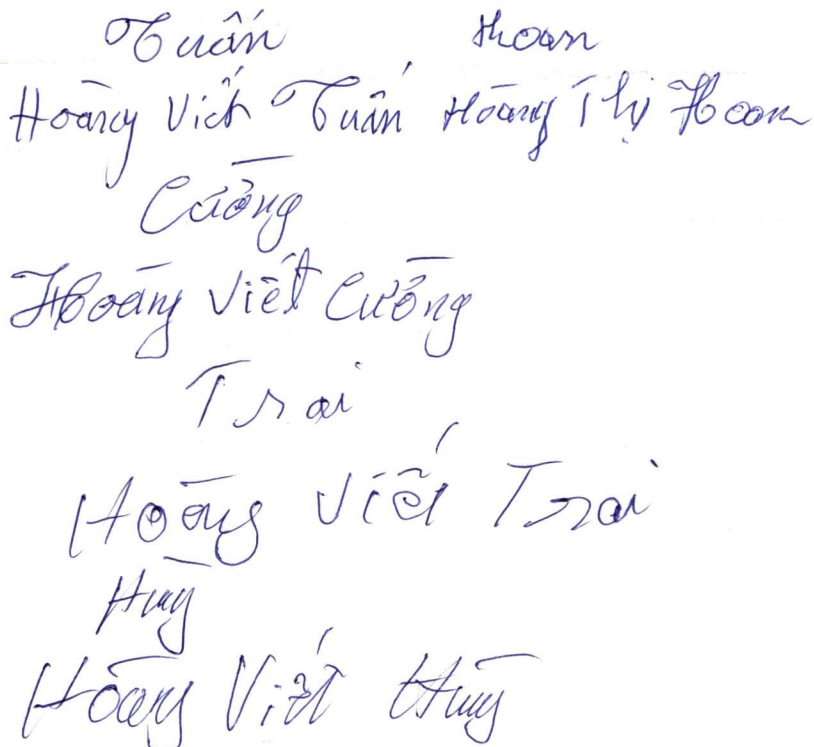 Tuấn Hoan
Hoàng Viết Tuấn Hoàng Thị Hoan
Cường
Hoàng Viết Cường
Trai
Hoàng Viết Trai
Huy
Hoàng Viết Huy